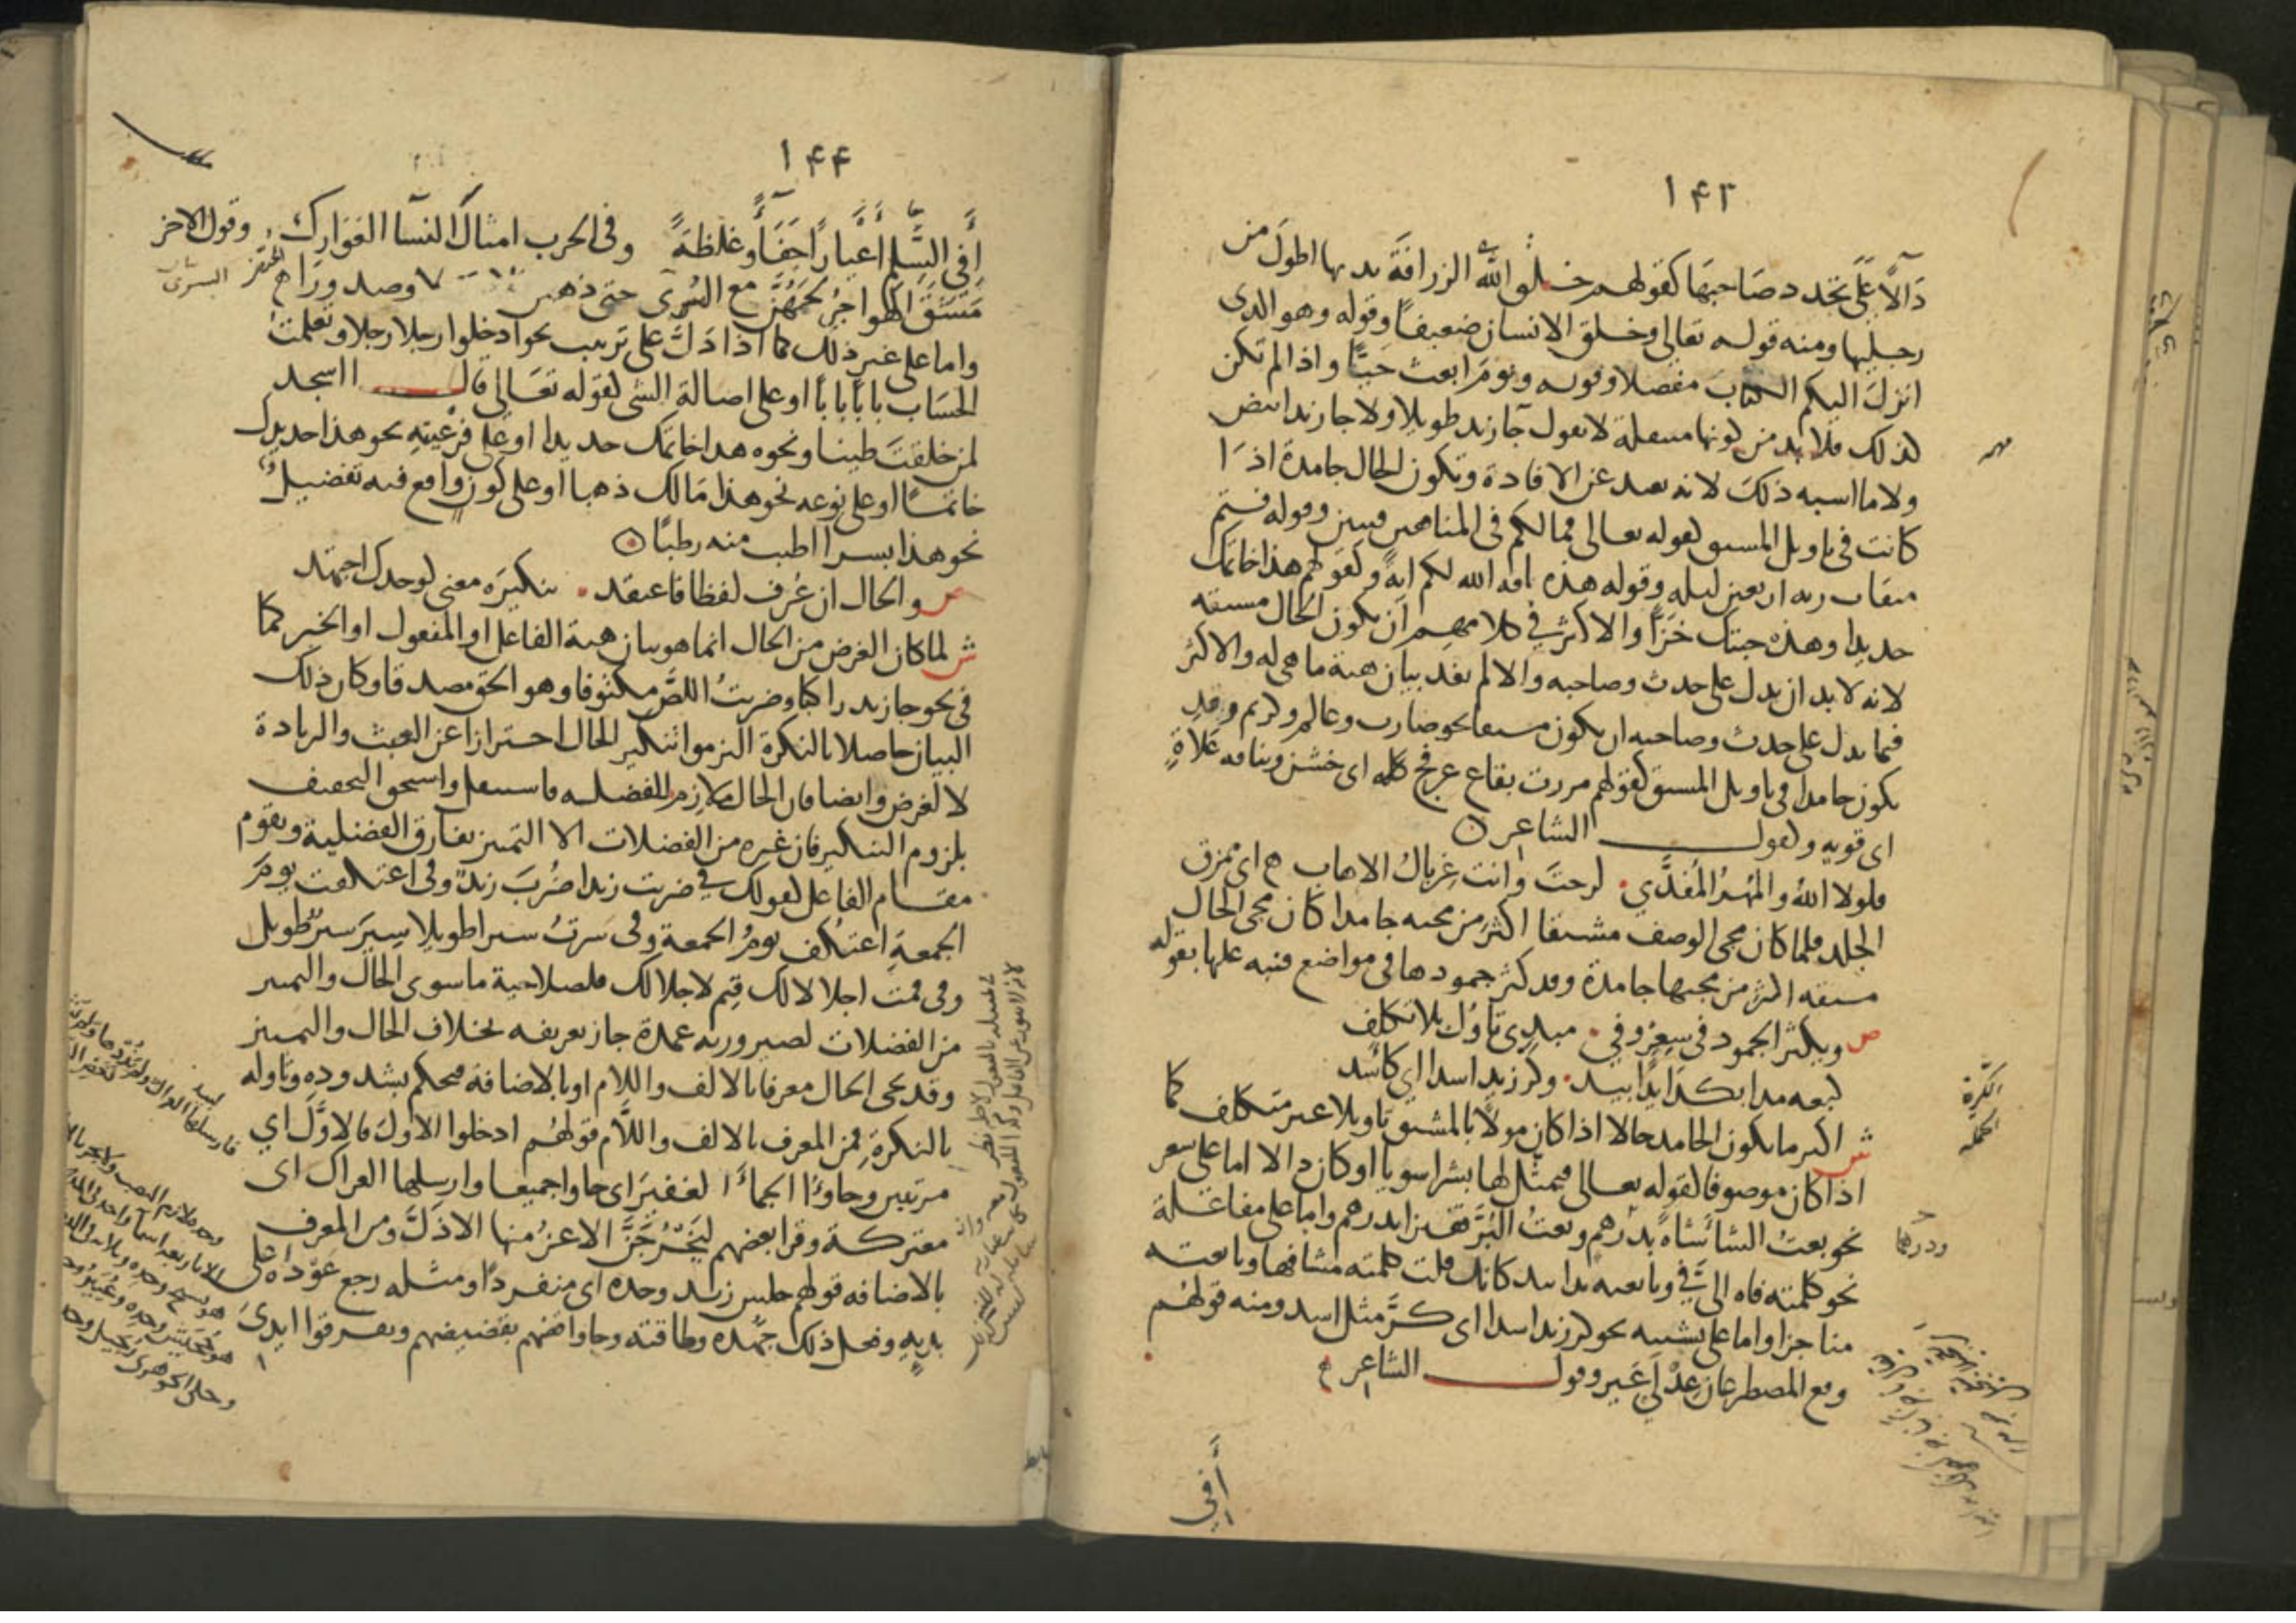 ١۴٣
دَالًّا عَلَى تجدد صَاحبهَا كقولهم خلق الله الزرافة يديها اطولَ من
رجليها ومنه قوله تعالى وخلق الانسان ضعيفًا وقوله وهو الذى
انزلَ اليكم الكتابَ مفصلا وقوله ويومَ ابعث حيًّا واذا لم تكن
كذلك فلا بد من كونها منتقلة لا تقول جآ زيد طويلا ولا جا زيد ابيض
ولا ما اشبه ذلكَ لانه بعيد عن الافادة وتكون الحال جامدة اذَا
كانت فى تاويل المشتق كقوله تعالى فما لكم فى المنافقين فيتين وقوله فتم
ميقات ربه اربعين ليله وقوله هذه ناقة الله لكم ايةً وكقولهم هذا خاتمك
حديدا وهذه جبتك خَزًّا والاكثر في كلامهم اَن يكون الحال مشتقه
لانه لا بد ان يدل على حدث وصاحبه والا لم يفد بيان هيئة ما هى له والاكثر
فيما يدل على حدث وصاحبه ان يكون مشتقا نحو ضارب وعالم وكريم وقد
يكون جامدا فى تاويل المشتق كقولهم مررت بقاع عرفج كله اى خشن وناقه عَلاةٍ
اى قويه وكقول الشاعر
فلولا اللهُ والمُهرُ المُفدَّي لرحتَ وانت غربالُ الاهاب اى ممزق
الجلد فلما كان مجى الوصف مشتقا اكثر من مجيه جامدا كان مجى الحال
مشتقه اكثر من مجيها جامدة وقد كثر جمودها فى مواضع فنبه عليها بقوله
ص ويكثر الجمود فى سِعرٍ وفي مبدِى تاوُل بلا تكلف
كبعه مدا بكذا يدا بيد وكر زيد اسدا اي كاسَد
ش اكثر ما يكون الجامد حالا اذا كان مولا بالمشتق تاويلا غير متكلف كما
اذا كان موصوفا كقوله تعالى فتمثل لها بشرا سويا او كان دالا اما على سعر
نحو بعتُ الشا شاةً بدرهمٍ وبعتُ البُرَّ قفيزا بدرهم واما على مفاعلة
نحو كلمته فاه الى فىَّ وبايعته يدا بيد كانك قلت كلمته مشافها وبايعته
مناجزا واما على تشبيه نحو كر زيد اسدا اى كرَّ مثل اسد ومنه قولهم
وقع المصطرعان عِدْلَي عَير وقول الشاعر
أَفي
ودرهما
١۴۴
أَفي السِّلمِ أعيارًا جَفَآءً وغلظةً وفى الحرب امثالَ النسآ الفوارك وقول الاخر
مَشَقَ الهواجرُ لحمَهُنَّ مع السُّرى حتى ذهبن
واما على غير ذلك كما اذا دَلَّ على ترتيب نحو ادخلوا رجلا رجلا وتعلمتُ
الحسَاب بابًا بابًا او على اصالة الشى كقوله تعَالى قال ااسجد
لمن خلقتَ طينا ونحوه هذا خاتمك حديدا او على فرعيتِهِ نحو هذا حديدك
خاتمًا او على نوعه نحو هذا مَالك ذهبا او على كون واقع فيه تفضيلٌ
نحو هذا بسرا اطيب منه رطبًا
ص والحال ان عُرف لفظا فاعتقد تنكيرَه معنى كوحدك اجتهد
ش لما كان الغرض من الحال انما هو بيان هيئة الفاعل او المفعول او الخبر كما
فى نحو جا زيد راكبا وضربتُ اللصَّ مكتوفا وهو الحق مصدقا وكان ذلك
البيان حاصلا بالنكرة التزموا تنكير الحال احترازا عن العبث والزيادة
لا لغرض وايضا فان الحال ملازم للفضله فاستثقل واستحق التخفيف
بلزوم التنكير فان غيره من الفضلات الا التمييز يفارق الفضلية ويقوم
مقام الفاعل كقولك في ضربت زيدا ضُربَ زيدٌ وفى اعتكفت يومَ
الجمعةِ اعتُكف يومُ الجمعة وفى سَرتُ سيرا طويلا سِيرَ سيرٌ طويل
وفى قمت اجلالا لك قِيم لاجلالك فلصلاحية ما سوى الحال والتمييز
من الفضلات لصيرورته عمدة جاز تعريفه بخلاف الحال والتمييز
وقد يجى الحال معرفا بالالف واللام او بالاضافة فيحكم بشذوده وتاوله
بالنكرةِ فمن المعرف بالالف واللَّام قولهُم ادخلوا الاولَ فالاوَّلَ اي
مرتبين وجاوُا الجمآءَ الغفيرَ اى جاوا جميعا وارسلها العراك اى
معتركة وقرا بعضهم ليَخْرُجَنَّ الاعزُ منها الاذَلَّ ومن المعرف
بالاضافه قولهم جلس زيد وحده اى منفردًا ومثله رجع عَوْدَه على
بديهِ وفعل ذلك جهده وطاقته وجاوا قضهم بقضيضهم وتفرقوا ايدىَ